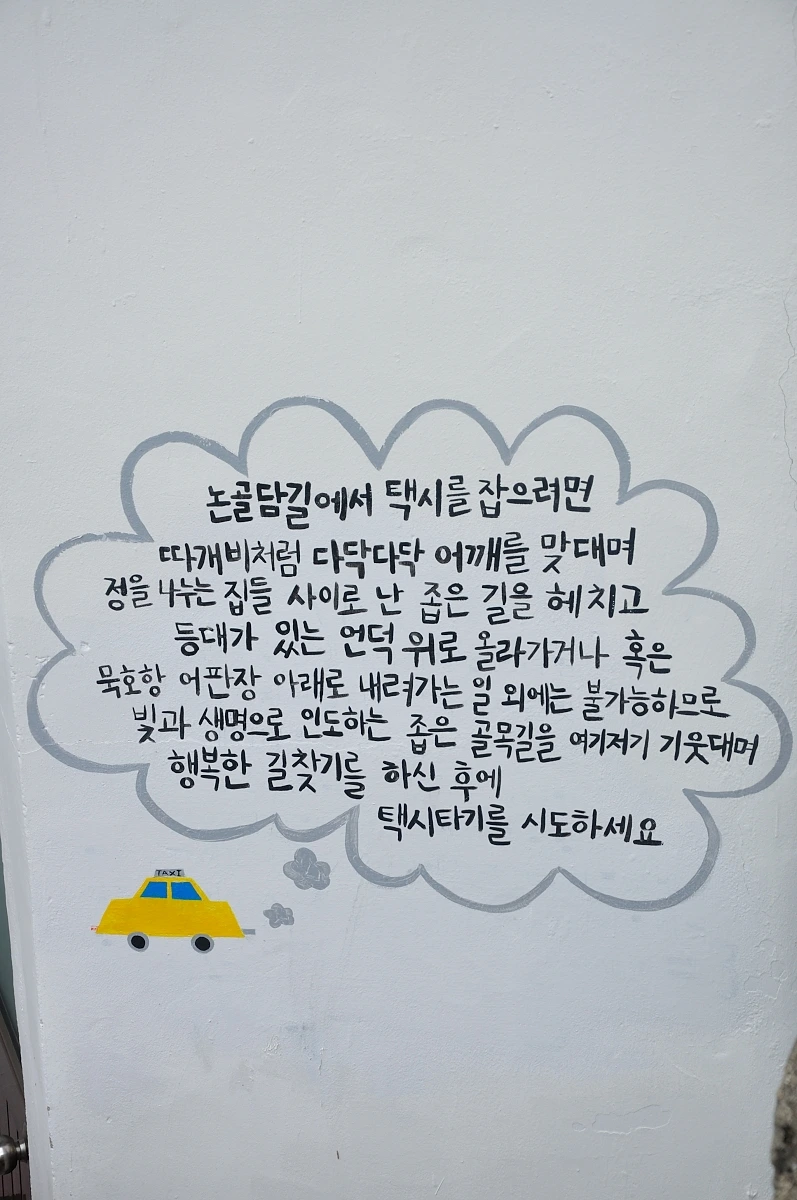 논골담길에서 택시를 잡으려면
따개비처럼 다닥다닥 어깨를 맞대며
정을 나누는 집들 사이로 난 좁은 길을 헤치고
등대가 있는 언덕 위로 올라가거나 혹은
묵호항 어판장 아래로 내려가는 일 외에는 불가능하므로
빛과 생명으로 인도하는 좁은 골목길을 여기저기 기웃대며
행복한 길찾기를 하신 후에
택시타기를 시도하세요
TAXI